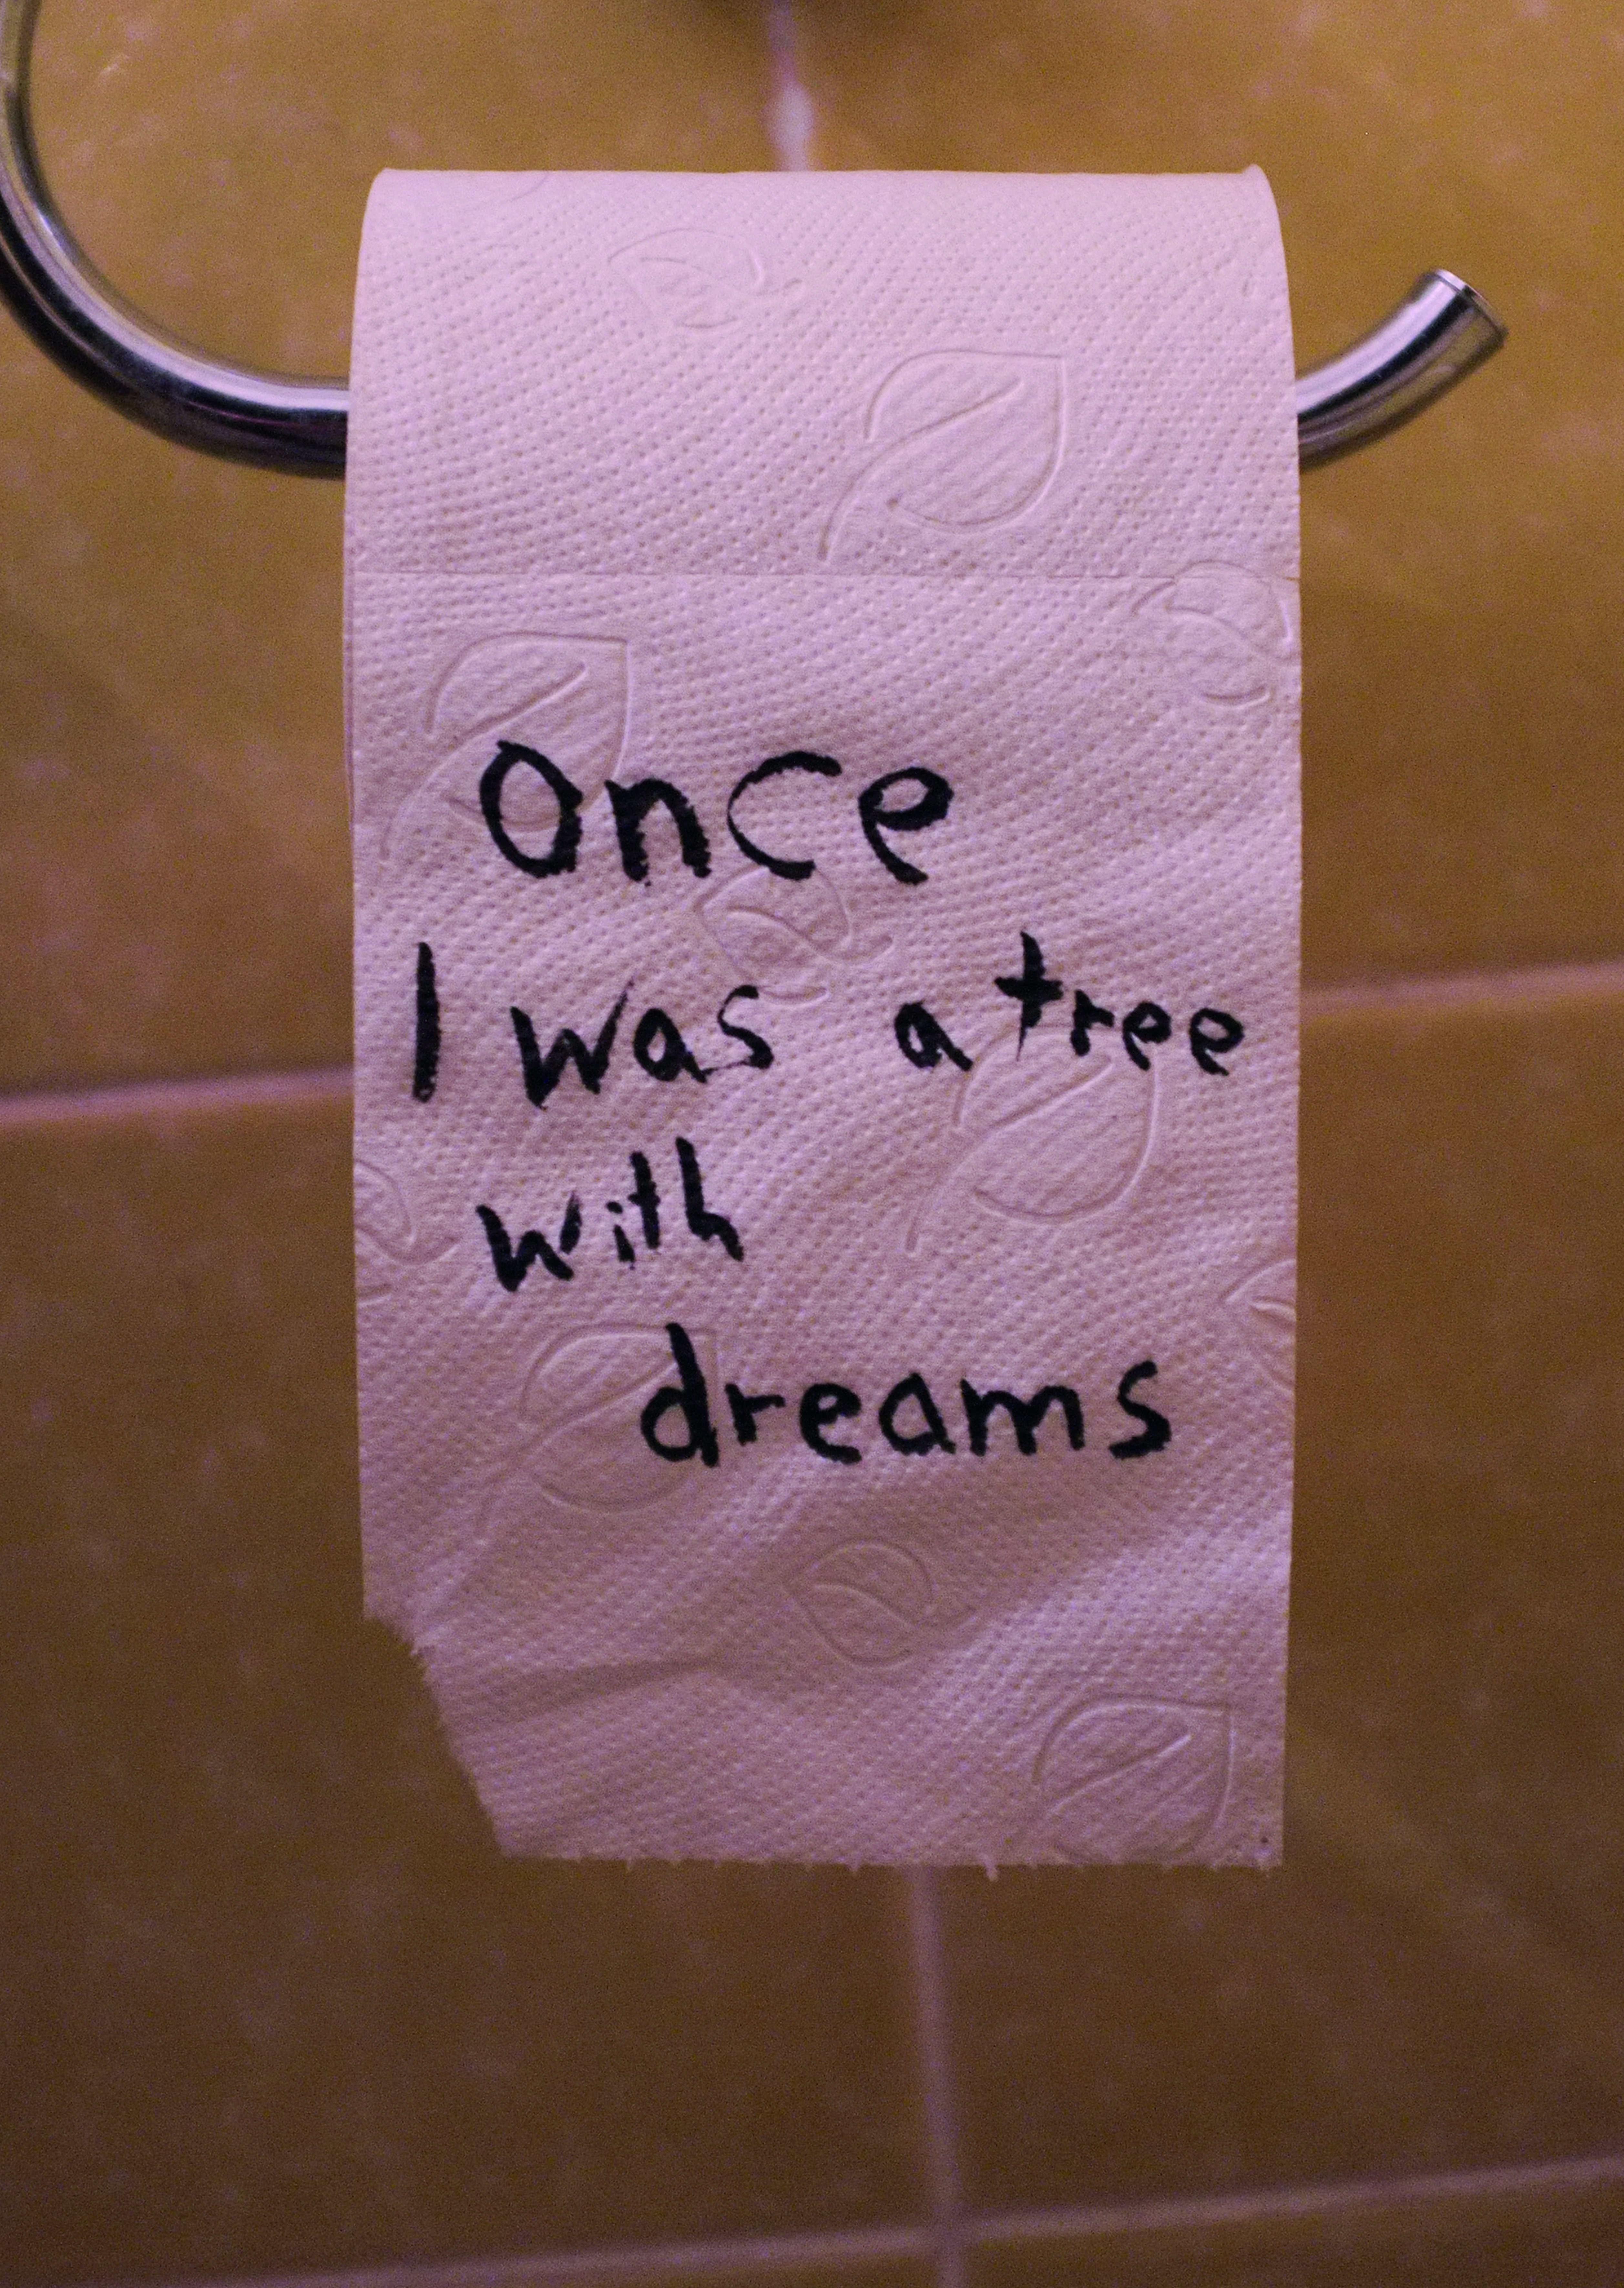 Once
I was a tree
with
dreams